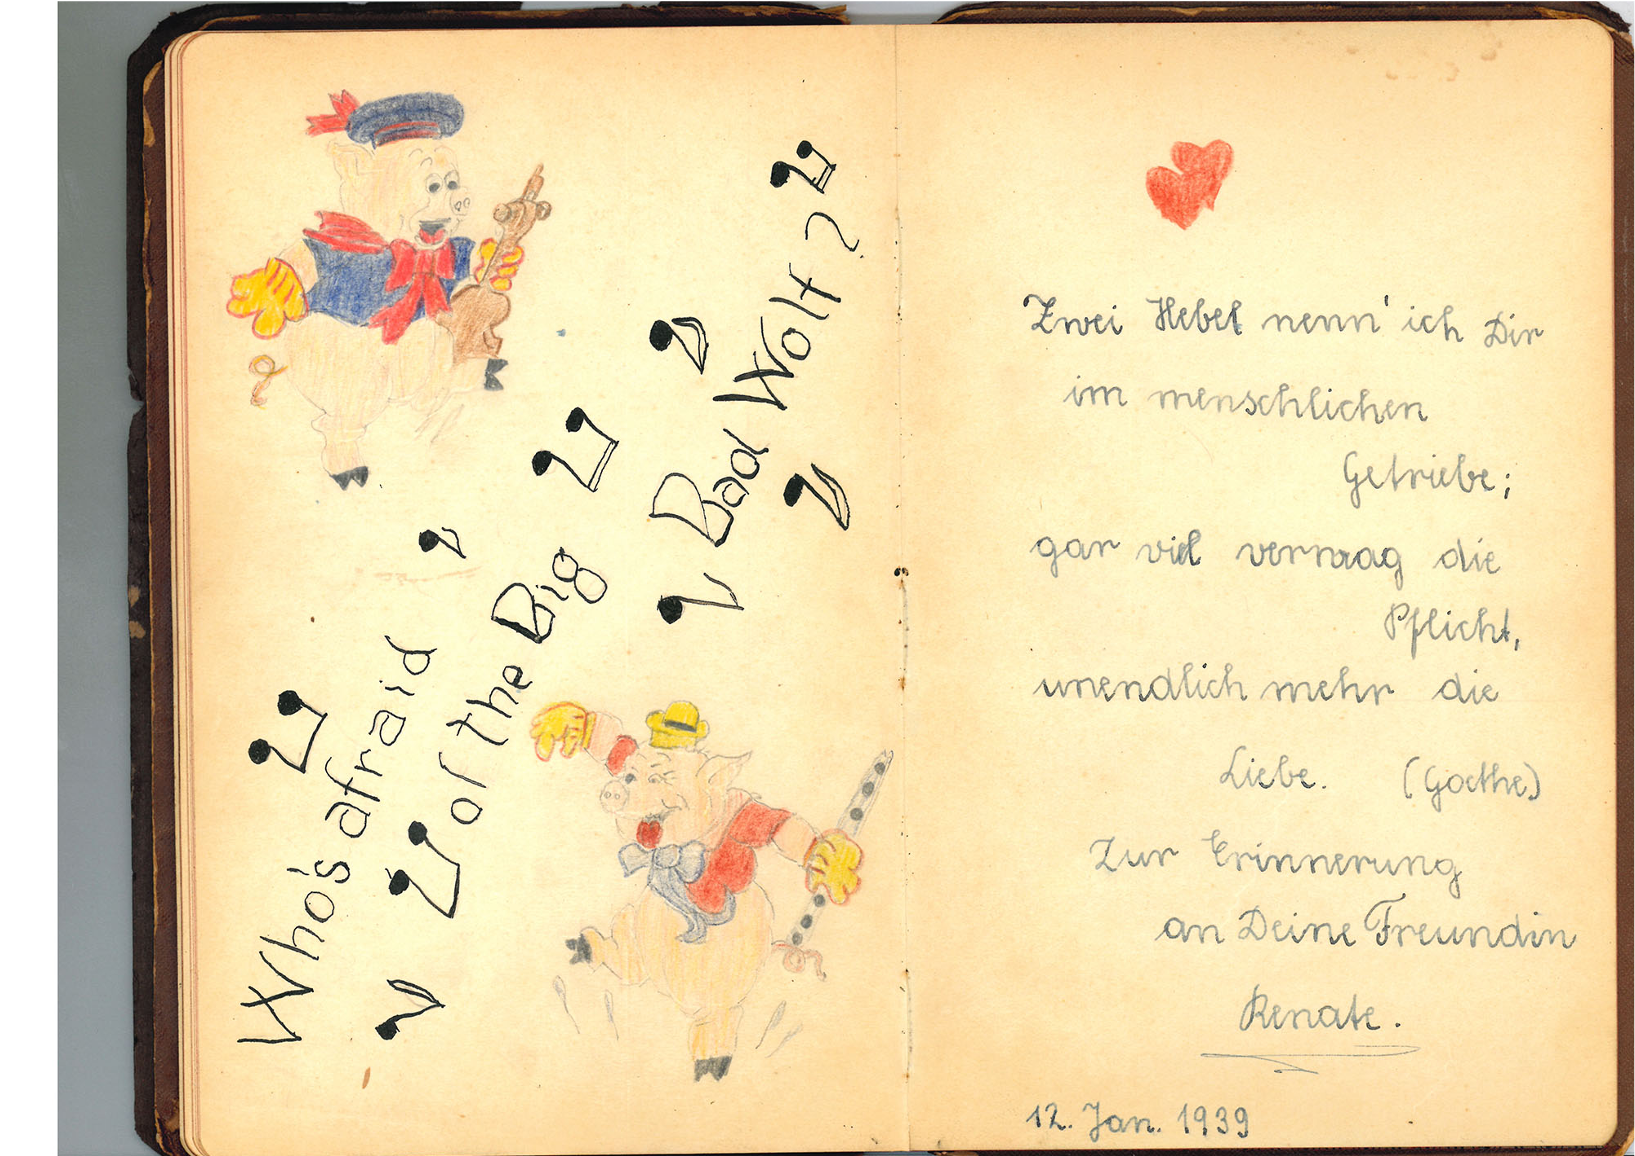 Who's afraid
of the Big
Bad Wolf?
Zwei Hebel nenn' ich Dir
im menschlichen
Getriebe;
gar viel vermag die
Pflicht,
unendlich mehr die
Liebe. (Goethe)
Zur Erinnerung
an Deine Freundin
Renate.
12. Jan. 1939